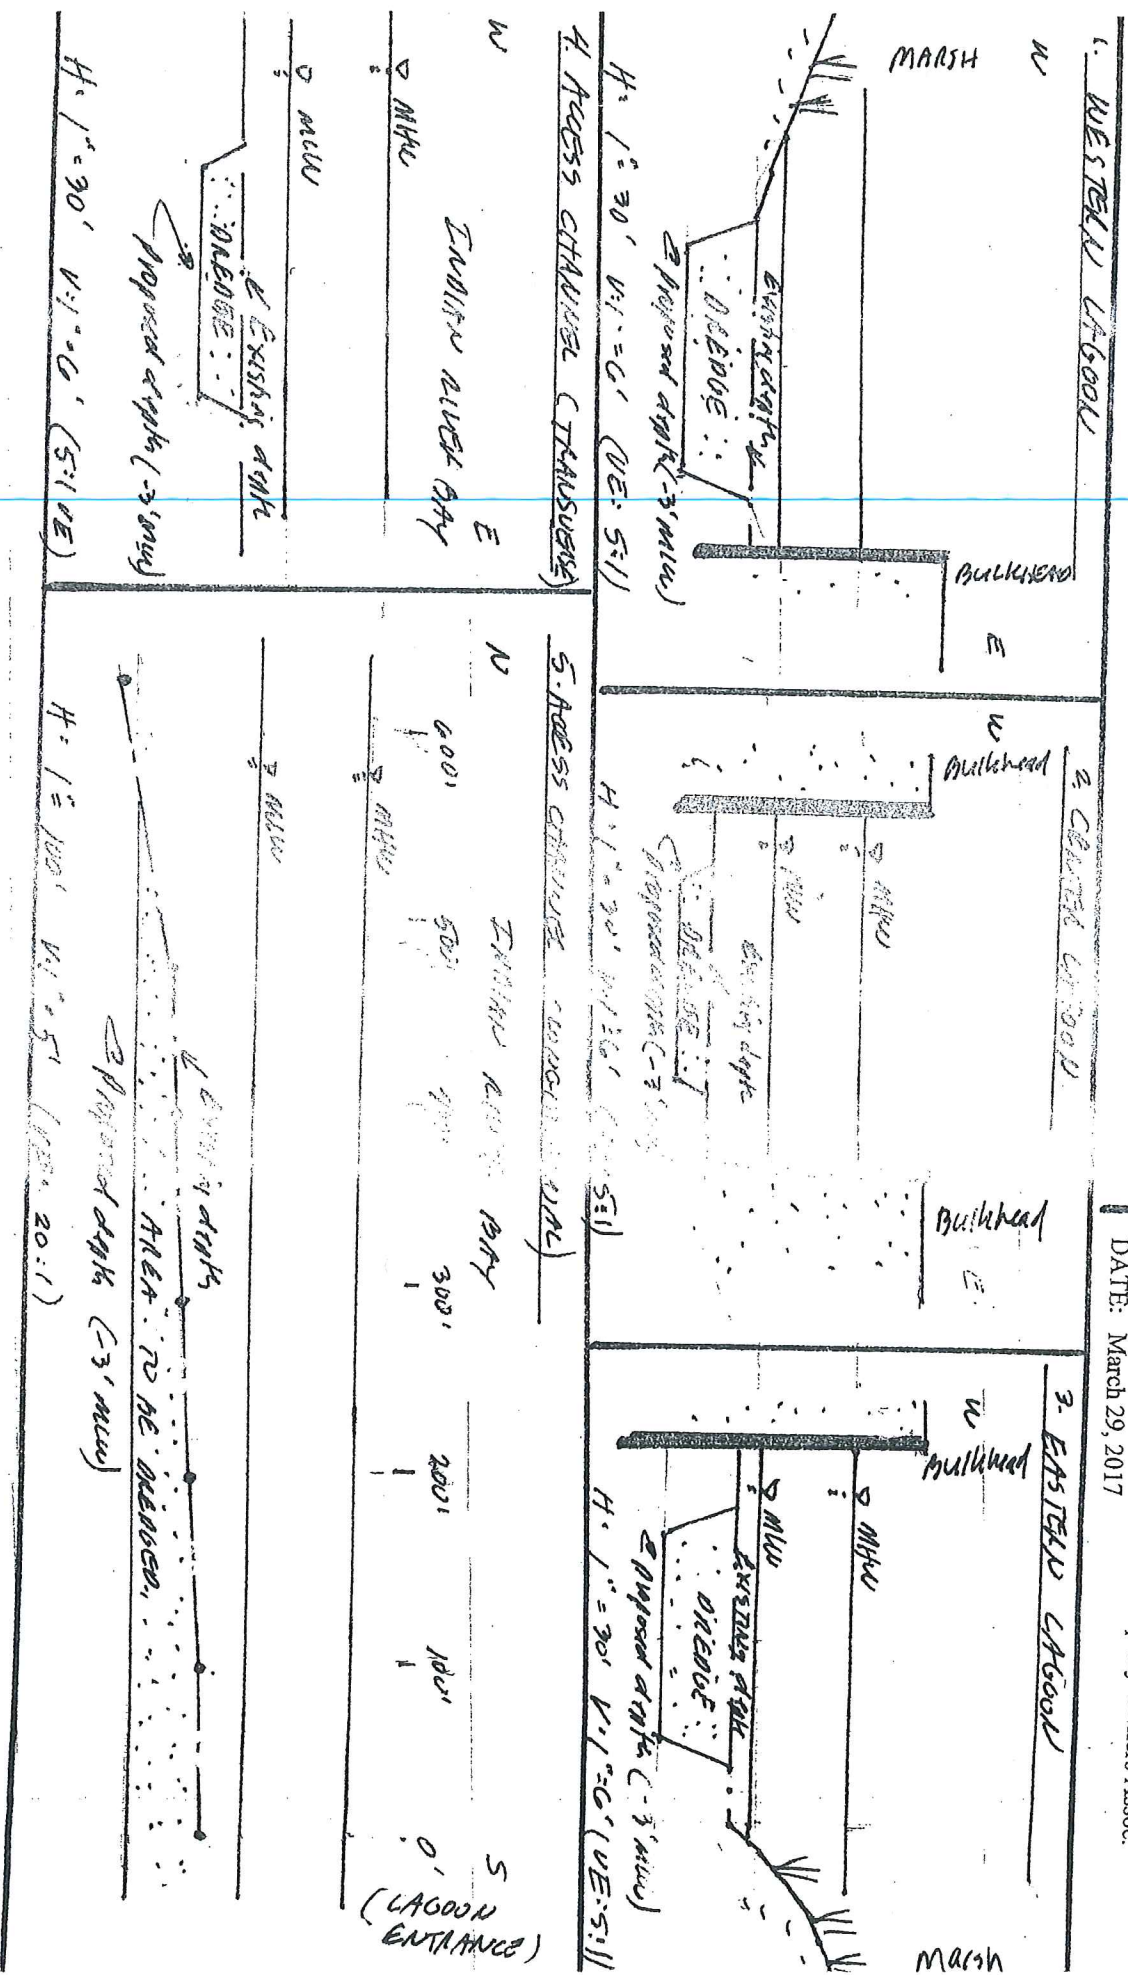 DATE: March 29, 2017
1. WESTERN LAGOON
W
MARSH
BULKHEAD
E
Existing depth
DREDGE
Proposed depth (-3' MLW)
H: 1"=30' V: 1"=6' (VE: 5:1)
2. CENTER LAGOON
W
Bulkhead
Bulkhead
E
MHW
MLW
Existing depth
DREDGE
Proposed depth (-3'
5:1)
3. EASTERN LAGOON
W
Bulkhead
Marsh
MHW
MLW
EXISTING depth
DREDGE
proposed depth (-3' MLW)
H: 1"=30' V: 1"=6' (VE: 5:1)
4. ACCESS CHANNEL (TRANSVERSE)
W
INDIAN RIVER BAY
E
MHW
MLW
Existing depth
DREDGE
Proposed depth (-3' MLW)
H: 1"=30' V: 1"=6' (5:1 VE)
5. ACCESS CHANNEL
N
INDIAN RIVER BAY
S
600' 500' 300' 200' 100' 0'
(LAGOON
ENTRANCE)
MHW
MLW
Existing depth
AREA TO BE DREDGED
Proposed depth (-3' MLW)
H: 1"=100' V: 1"=5' (VE: 20:1)